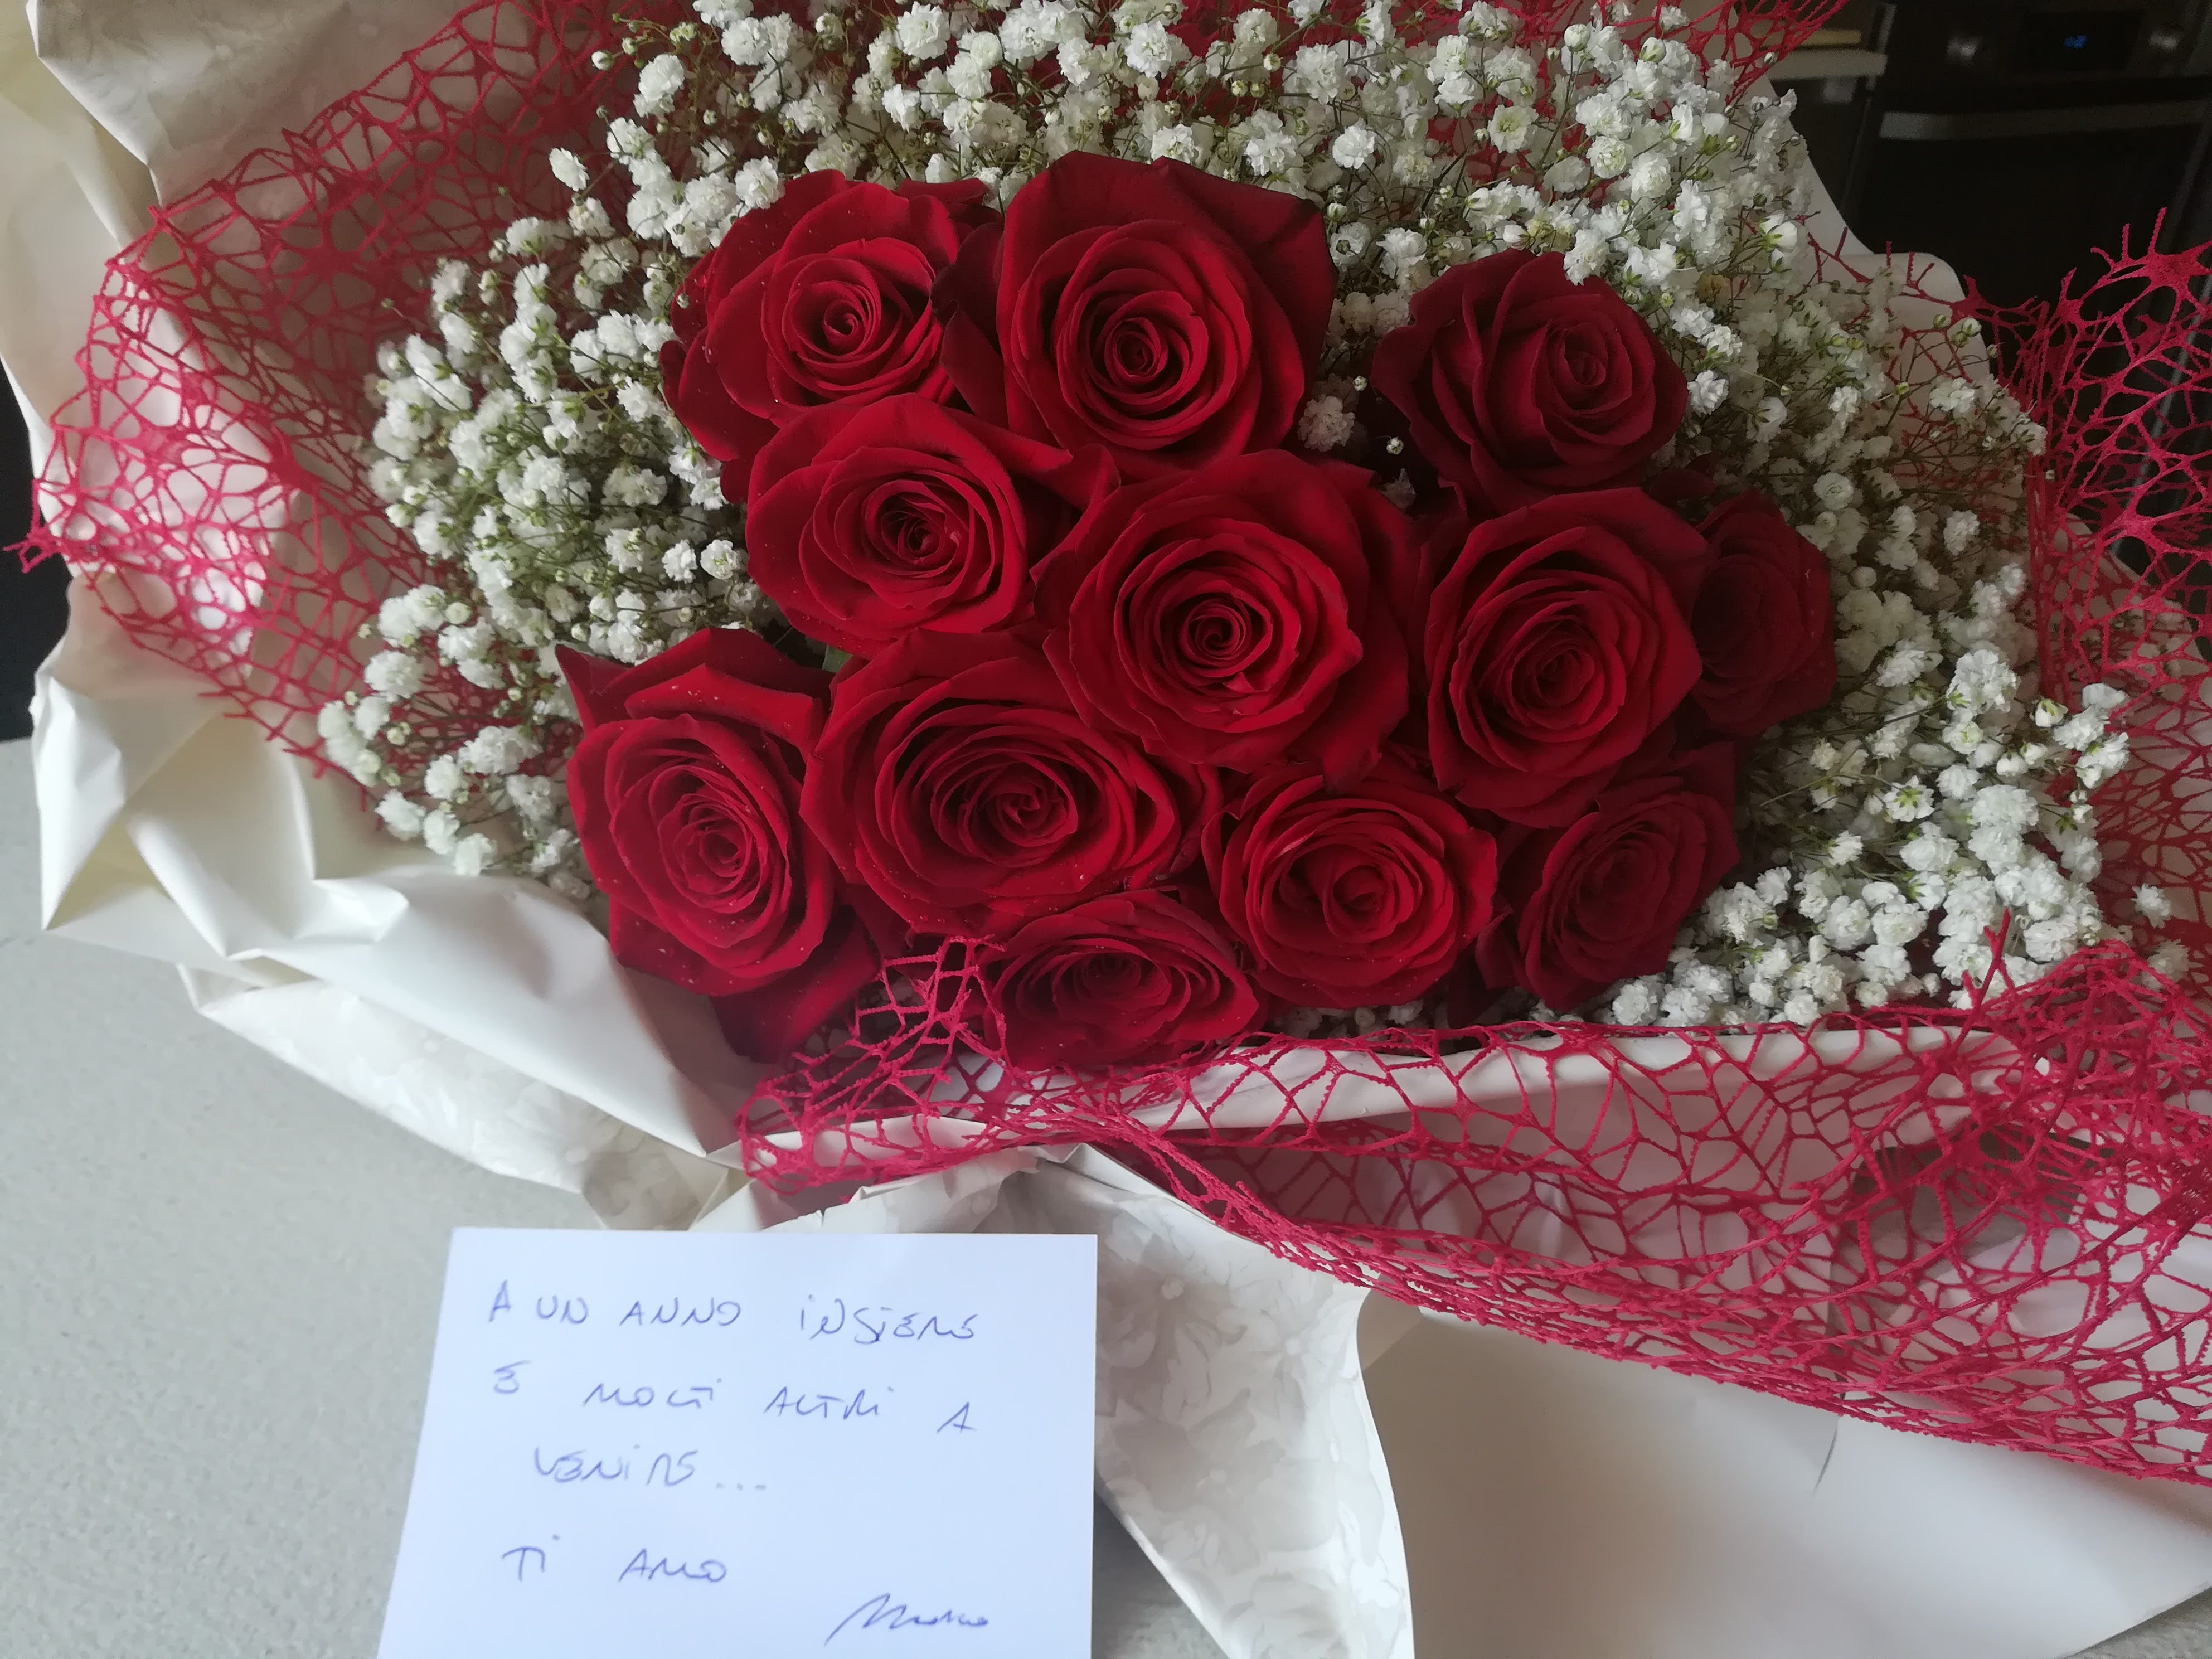 A UN ANNO INSIEME
E MOLTI ALTRI A
VENIRE...
TI AMO